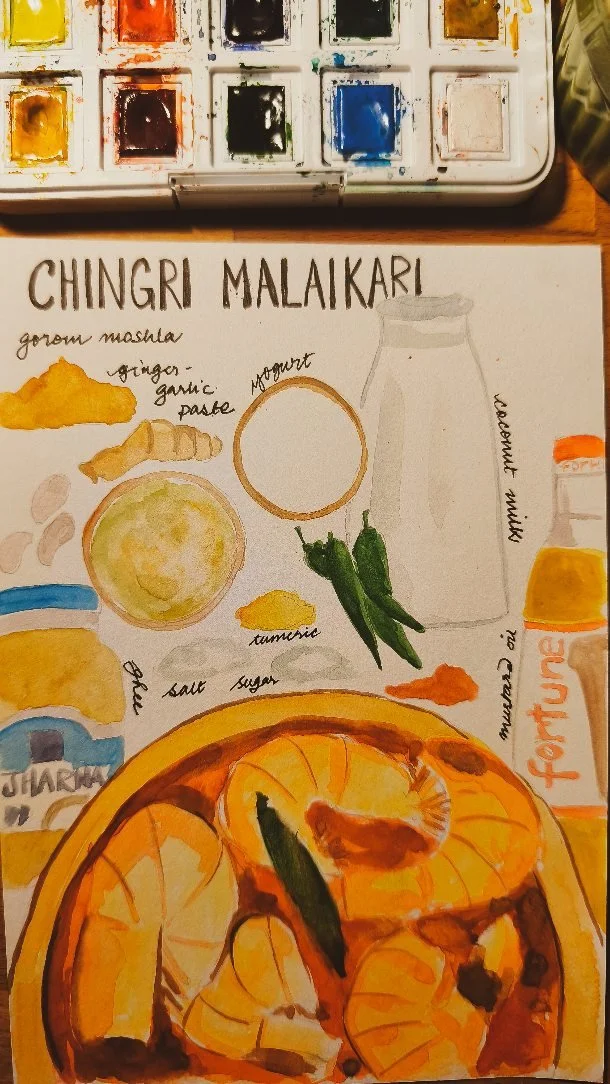 CHINGRI MALAIKARI
gorom moshla
ginger-
garlic
paste
yogurt
coconut milk
turmeric
ghee
salt
sugar
mustard oil
fortune
JHARNA